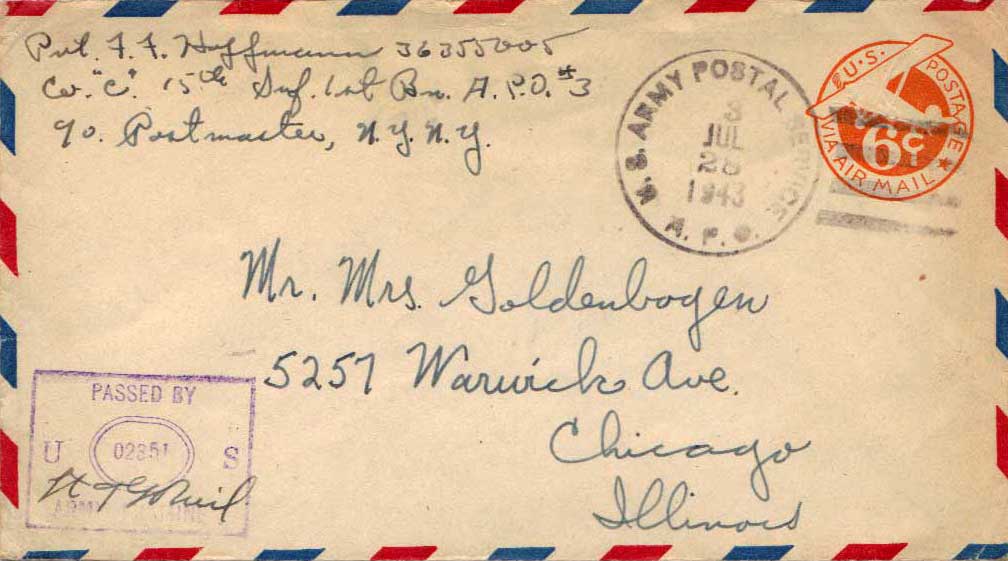 Pvt. F. F. Hoffmann 36355005
Co. "C". 15th Inf. 1st Bn. A.P.O. #3
c/o. Postmaster, N.Y. N.Y.
U.S. ARMY POSTAL SERVICE
3
JUL
28
1943
A.P.O.
U.S. POSTAGE
6c
VIA AIR MAIL
Mr. Mrs. Goldenbogen
5257 Warwick Ave.
Chicago
Illinois
PASSED BY
U 02351 S
ARMY